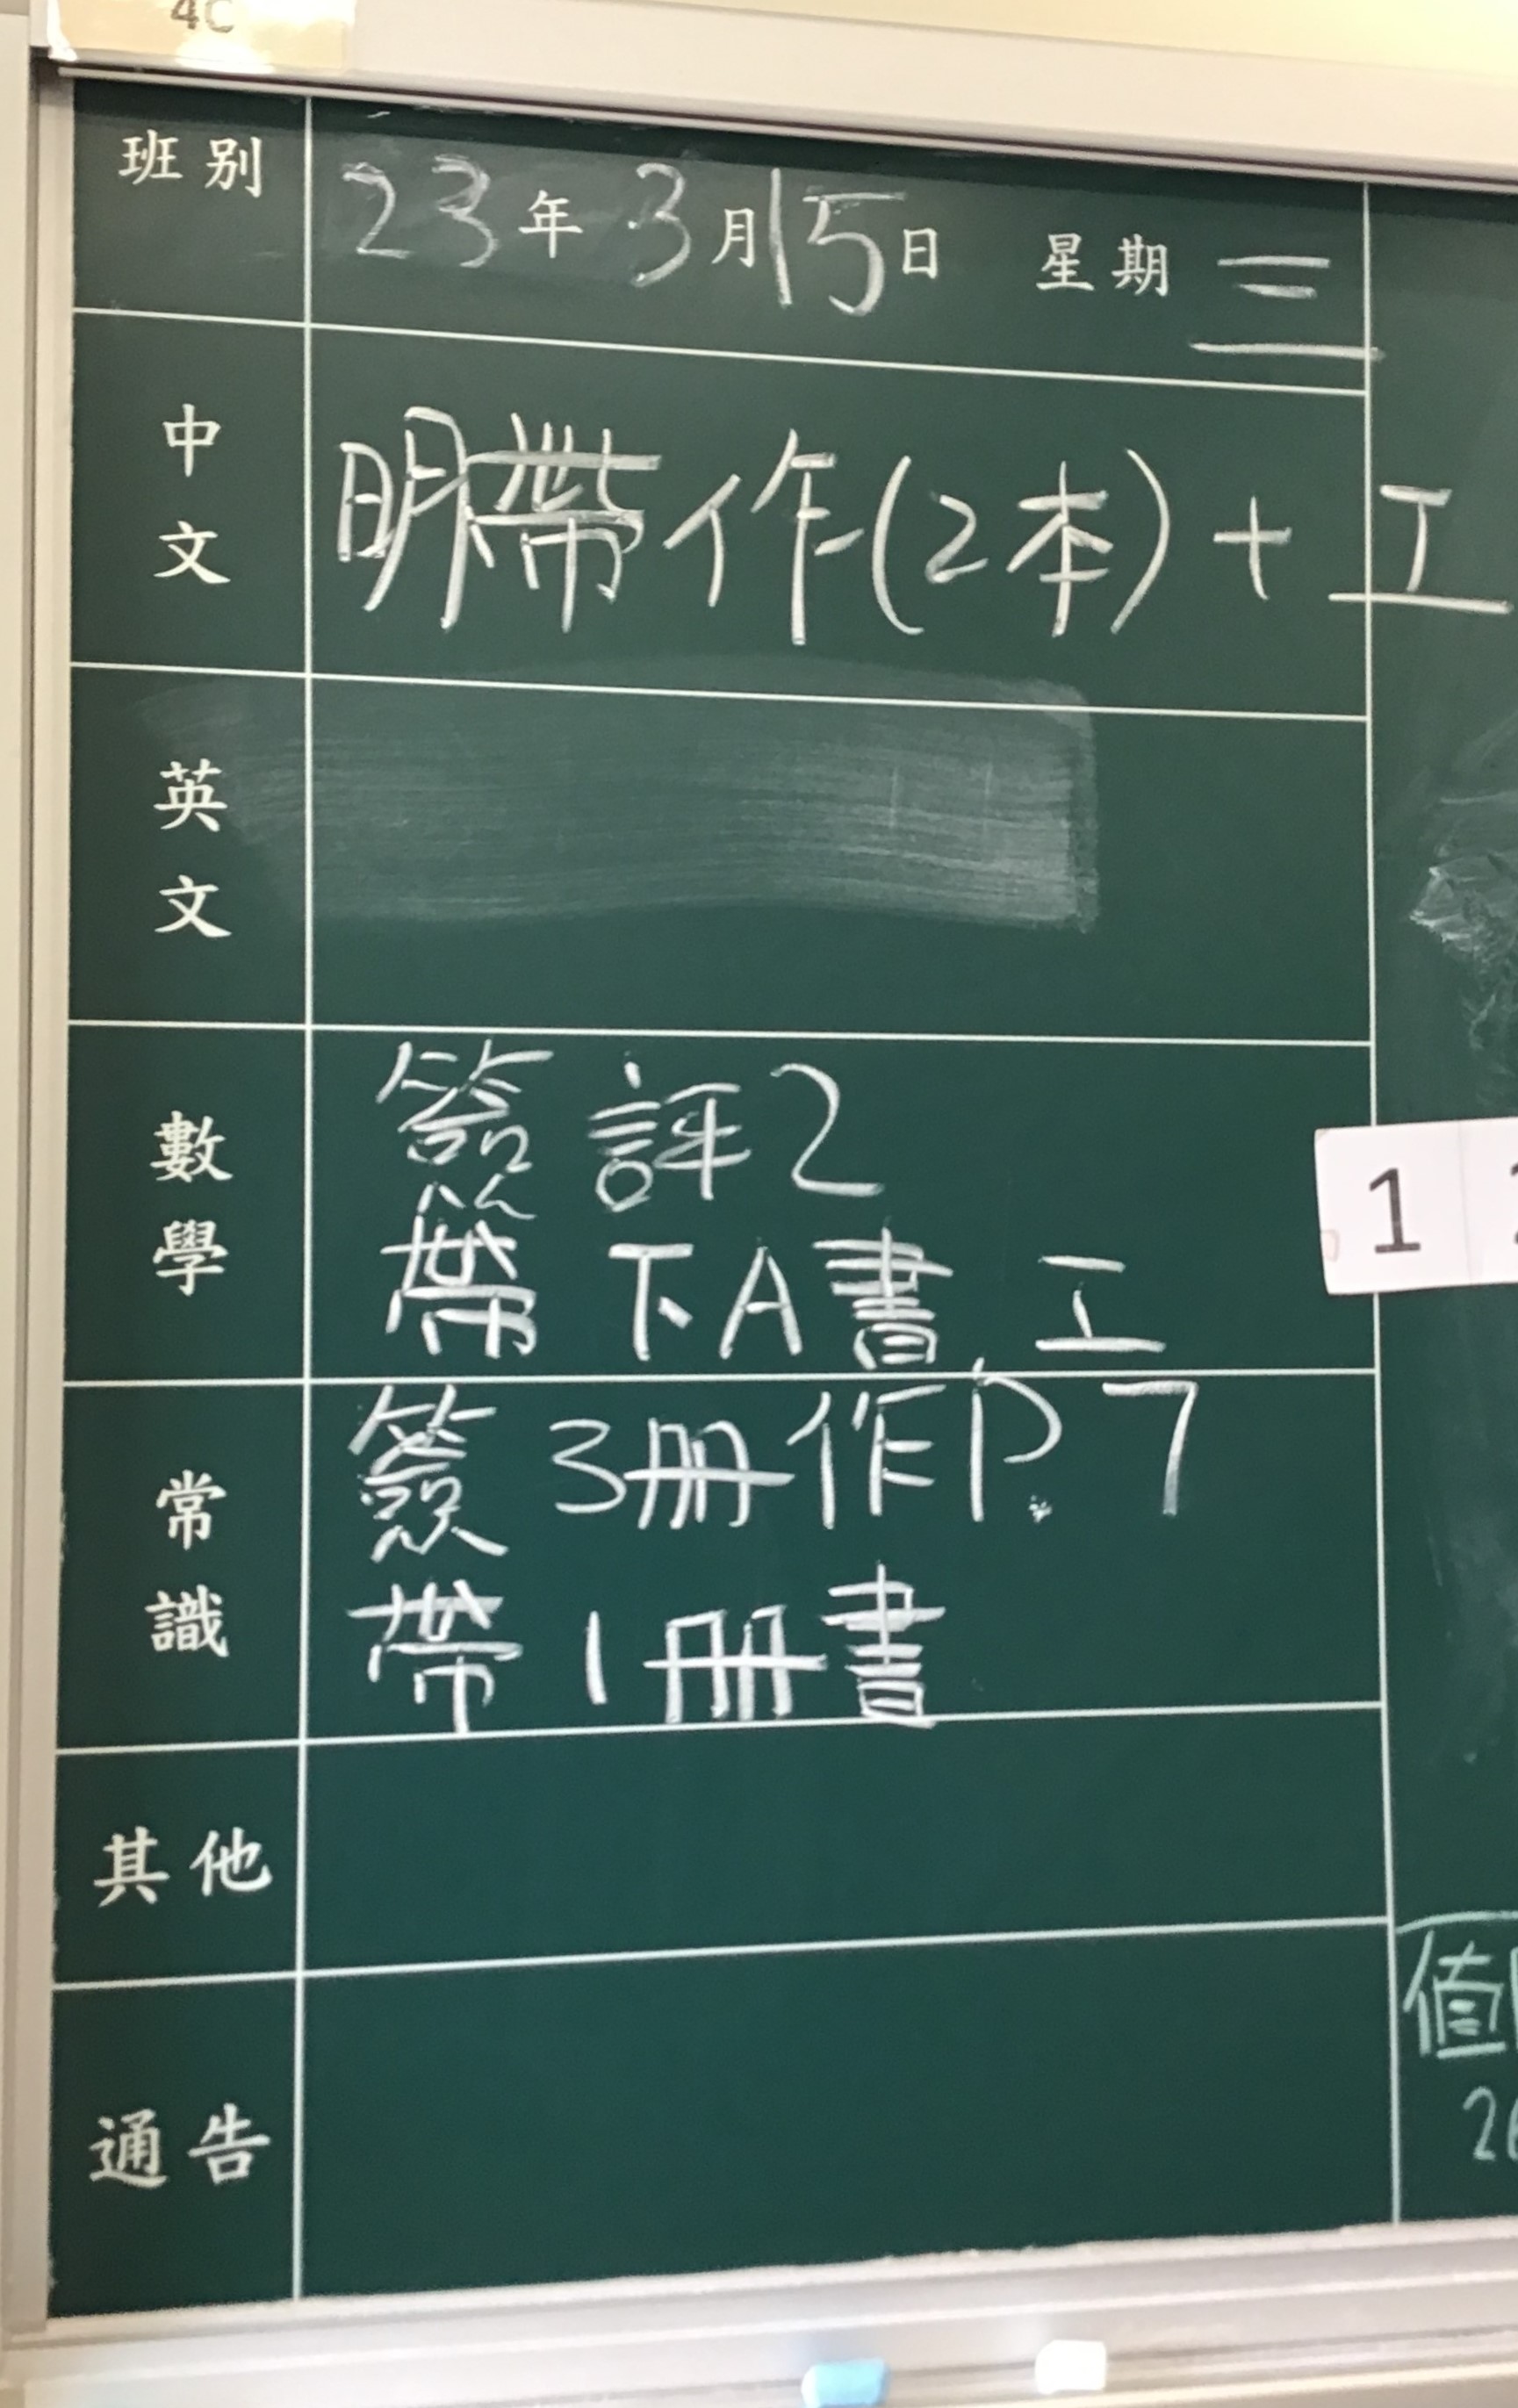 4C
班別 23年3月15日 星期三
中文 明帶作(2本)+工
英文
數學 簽評2
帶下A書,工
常識 簽3冊作P.7
帶1冊書
其他
通告
1
值